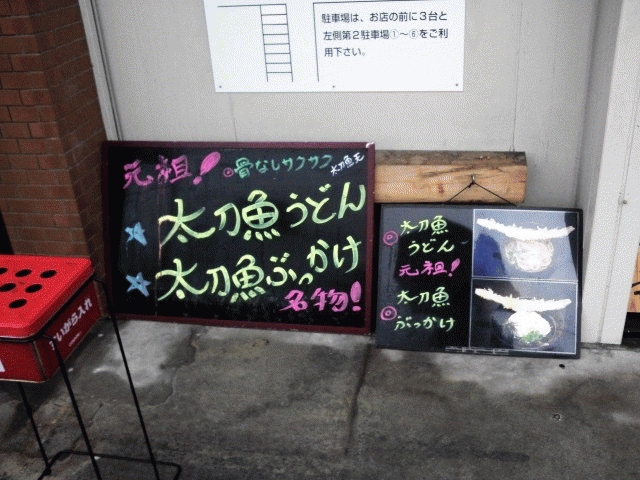 駐車場は、お店の前に3台と
左側第2駐車場①〜⑥をご利
用下さい。
元祖!◎骨なしサクサク太刀魚天
★太刀魚うどん
★太刀魚ぶっかけ
名物!
◎太刀魚
うどん
元祖!
◎太刀魚
ぶっかけ
いがら入れ